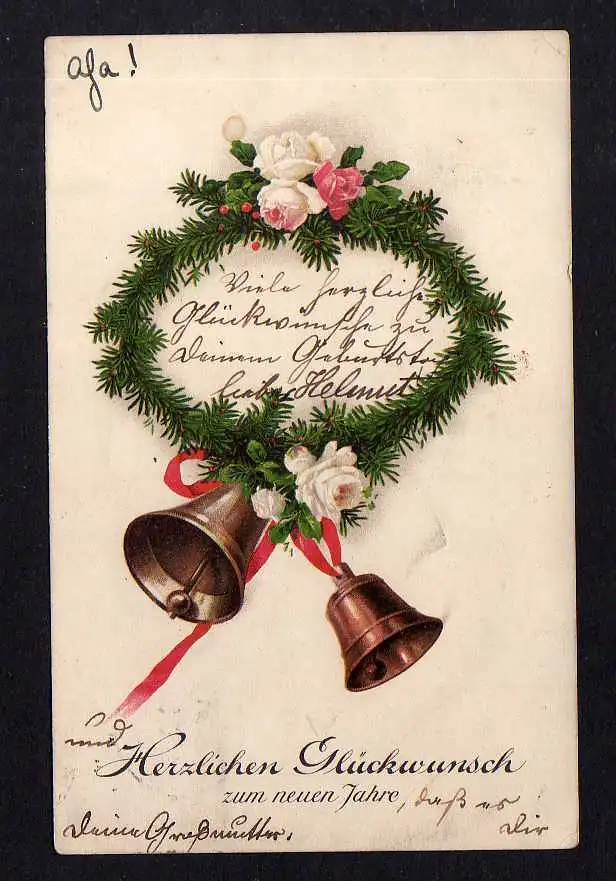 Aha!
Viele herzliche
Glückwünsche zu
Deinem Geburtsta
lieber Helmut
und
Herzlichen Glückwunsch
zum neuen Jahre, daß es
Deine Großmutter. Dir